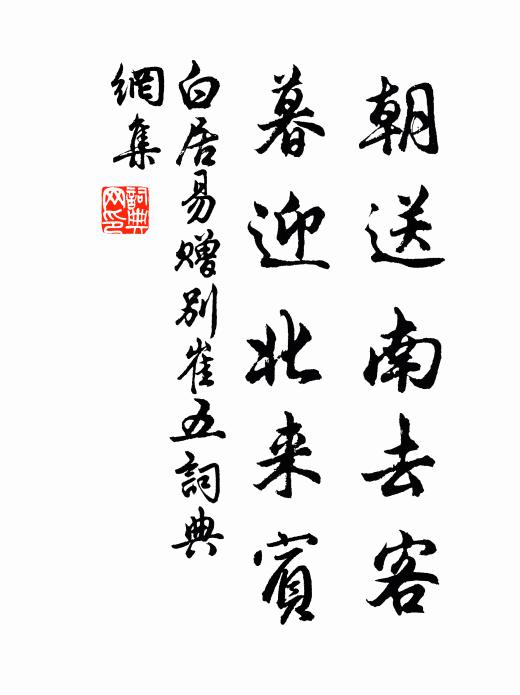 朝送南去客
暮迎北来賓
白居易赠别崔五詞典
網集
詞典网印